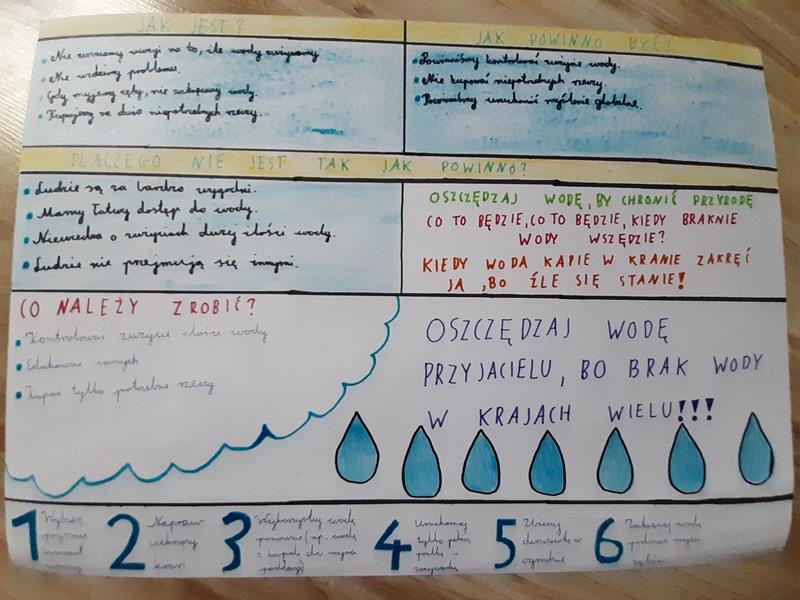 JAK JEST?
Nie zwracamy uwagi na to, ile wody zużywamy
Nie widzimy problemu.
Gdy myjemy zęby, nie zakręcamy wody.
Kupujemy za dużo niepotrzebnych rzeczy.
JAK POWINNO BYĆ?
Powinniśmy kontrolować zużycie wody.
Nie kupować niepotrzebnych rzeczy.
Powinniśmy uruchomić myślenie globalne.
DLACZEGO NIE JEST TAK JAK POWINNO?
Ludzie są za bardzo wygodni.
Mamy łatwy dostęp do wody.
Niewiedza o zużyciach dużej ilości wody.
Ludzie nie przejmują się innymi.
OSZCZĘDZAJ WODĘ, BY CHRONIĆ PRZYRODĘ
CO TO BĘDZIE, CO TO BĘDZIE, KIEDY BRAKNIE
WODY WSZĘDZIE?
KIEDY WODA KAPIE W KRANIE ZAKRĘĆ
JA ,BO ŹLE SIĘ STANIE!
CO NALEŻY ZROBIĆ?
Kontrolować zużycie ilości wody
Edukować innych
Kupić tylko potrzebne rzeczy
OSZCZĘDZAJ WODĘ
PRZYJACIELU, BO BRAK WODY
W KRAJACH WIELU!!!
1 Wybierz
prysznic
zamiast
wanny
2 Napraw
cieknący
kran
3 Wykorzystuj wodę
ponownie (np. wodę
z kąpieli do mycia
podłogi)
4 Uruchamiaj
tylko pełną
pralkę -
zmywarkę
5 Zbieraj
deszczówkę w
ogrodzie
6 Zakręcaj wodę
podczas mycia
zębów